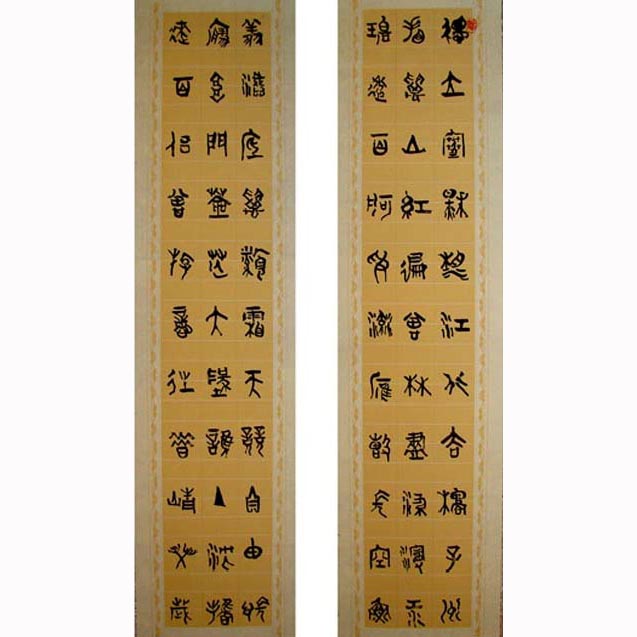 獨立寒秋湘江北去橘子洲
看萬山紅遍曾林盡染漫江
碧透百舸爭流鷹擊長空魚
翔淺底萬類霜天競自由悵
寥廓問蒼茫大地誰主沉攜
來百侶曾游憶往昔崢嶸歲